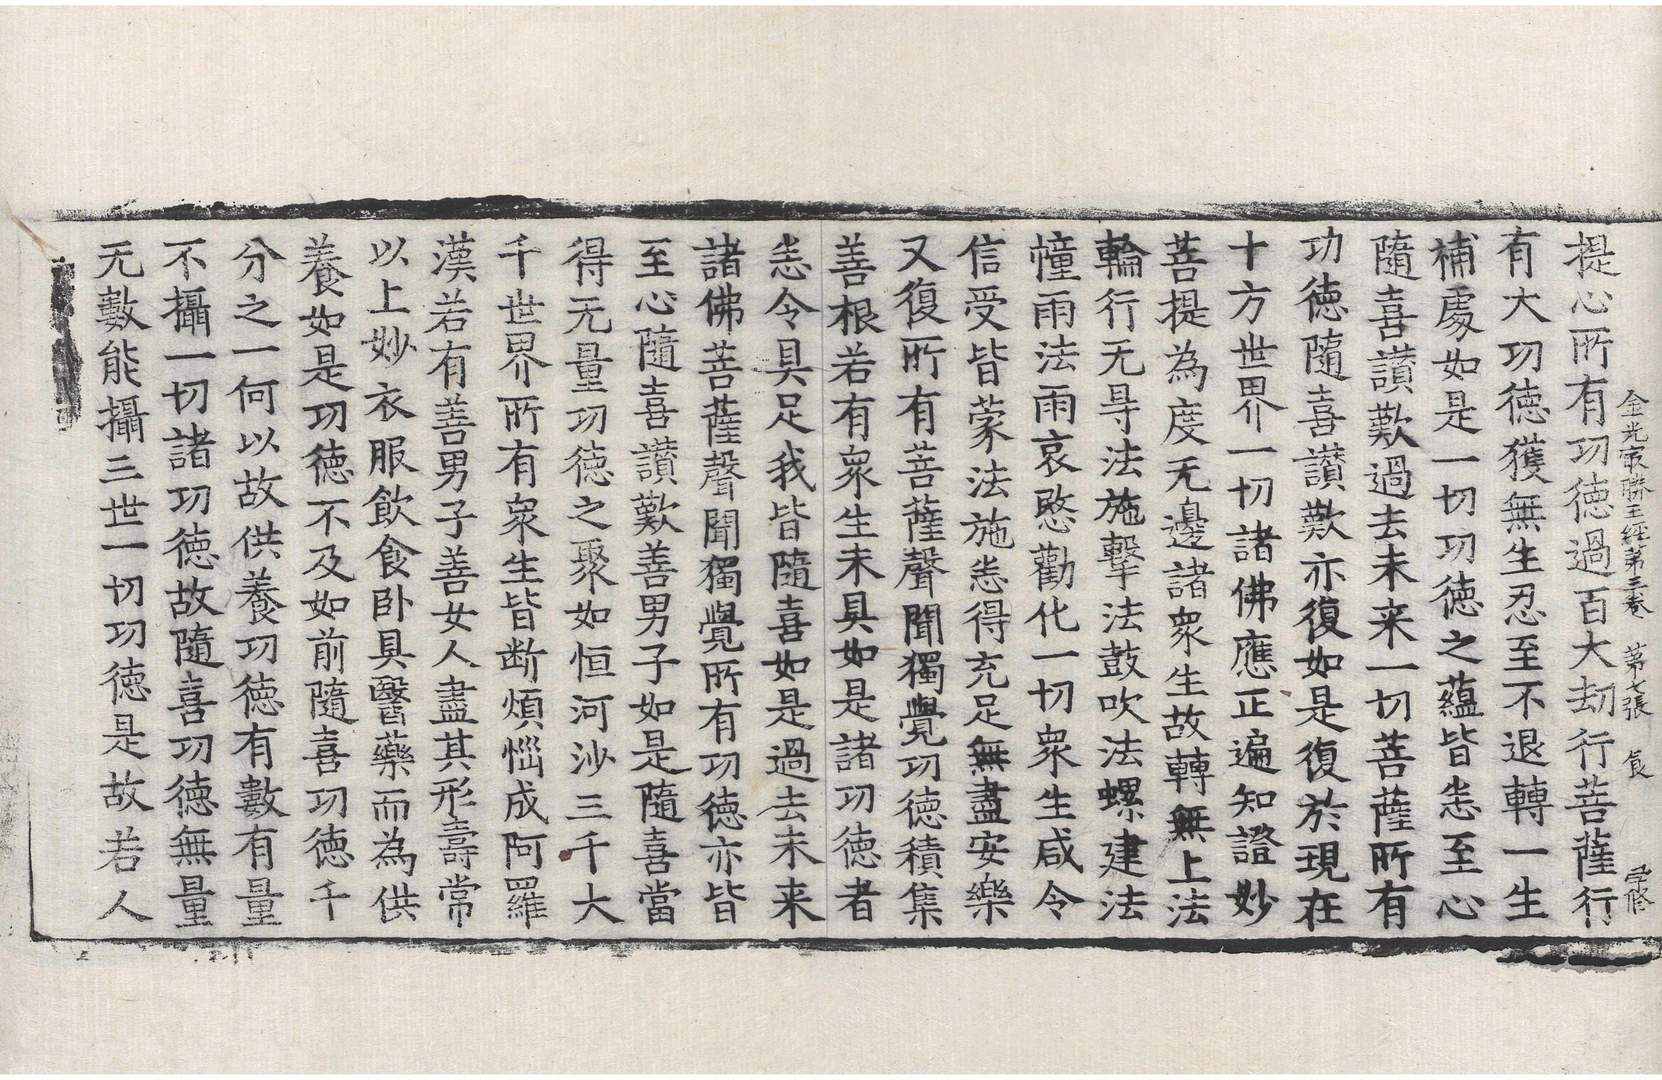 金光冣勝王經第三卷　第七張　良　孚修
提心所有功德過百大劫行菩薩行
有大功德獲無生忍至不退轉一生
補處如是一切功德之蘊皆悉至心
隨喜讃歎過去未来一切菩薩所有
功德隨喜讃歎亦復如是復於現在
十方世界一切諸佛應正遍知證妙
菩提為度无邊諸衆生故轉無上法
輪行无㝵法施擊法鼓吹法螺建法
幢雨法雨哀愍勸化一切衆生咸令
信受皆蒙法施悉得充足無盡安樂
又復所有菩薩聲聞獨覺功德積集
善根若有衆生未具如是諸功德者
悉令具足我皆隨喜如是過去未来
諸佛菩薩聲聞獨覺所有功德亦皆
至心隨喜讃歎善男子如是隨喜當
得无量功德之聚如恒河沙三千大
千世界所有衆生皆断煩惱成阿羅
漢若有善男子善女人盡其形壽常
以上妙衣服飲食卧具醫藥而為供
養如是功德不及如前隨喜功德千
分之一何以故供養功德有數有量
不攝一切諸功德故隨喜功德無量
无數能攝三世一切功德是故若人